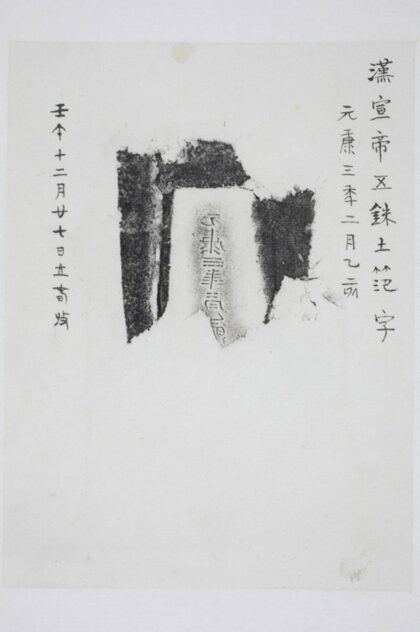 漢宣帝五銖土笵字
元康三年二月乙亥
元康三年
壬午十二月廿七日立